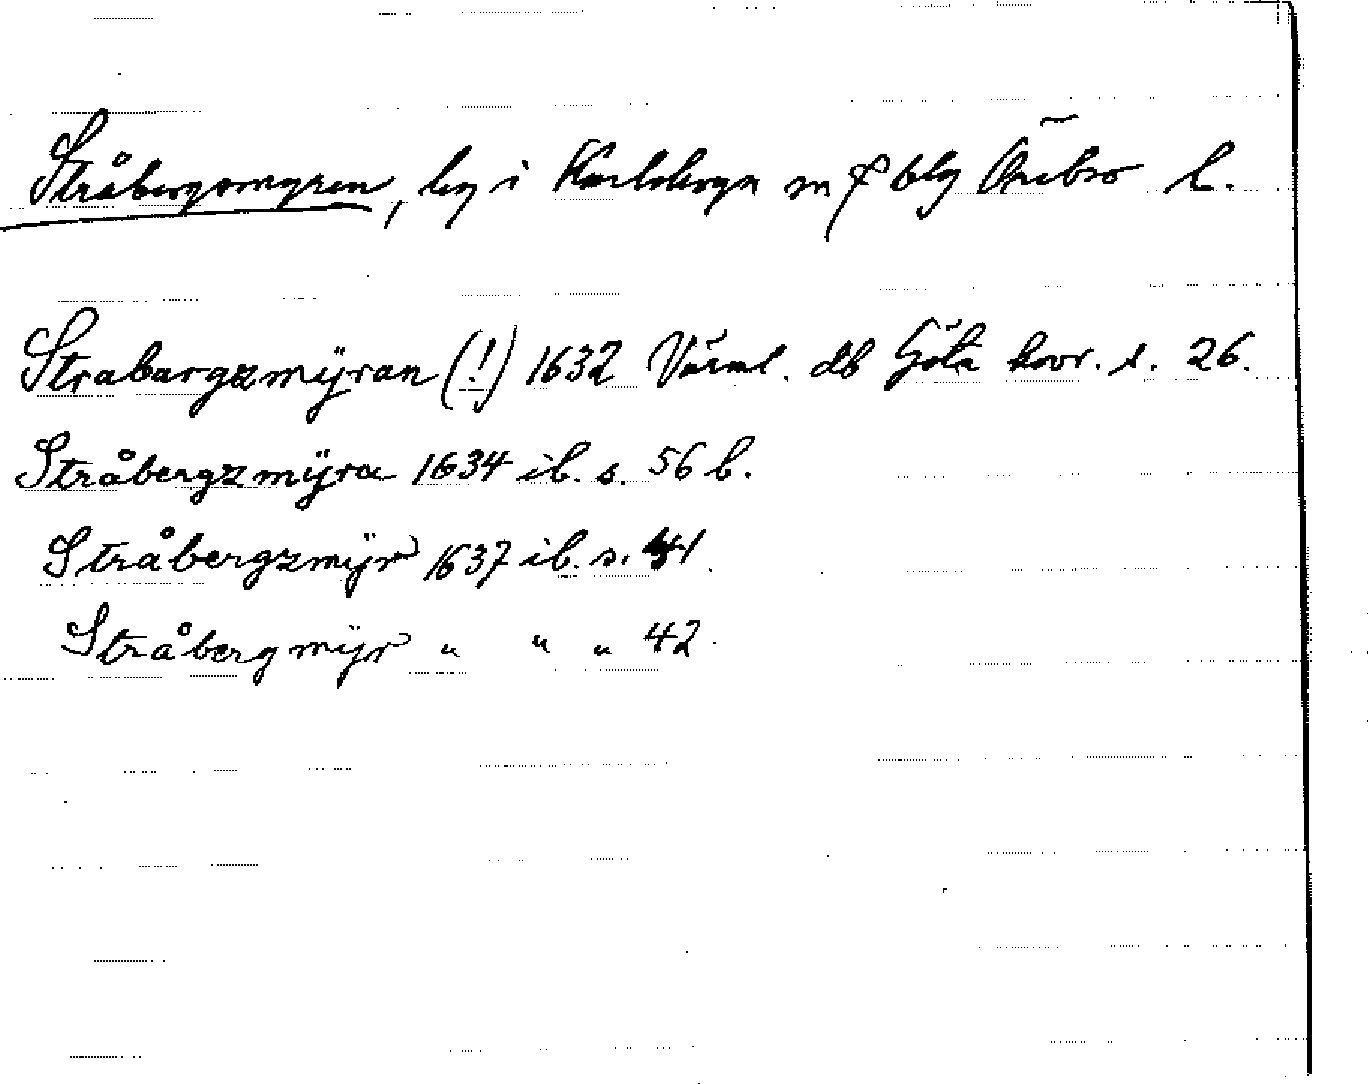 Stråbergsmyren, by i Karlskoga sn o blg Örebro l.
Strabargzmÿran (!) 1632 Värml. db Göta hovr. s. 26.
Stråbergzmÿra 1634 ib. s. 56 b.
Stråbergzmÿr 1637 ib. s. 41.
Stråbergmÿr " " " 42.